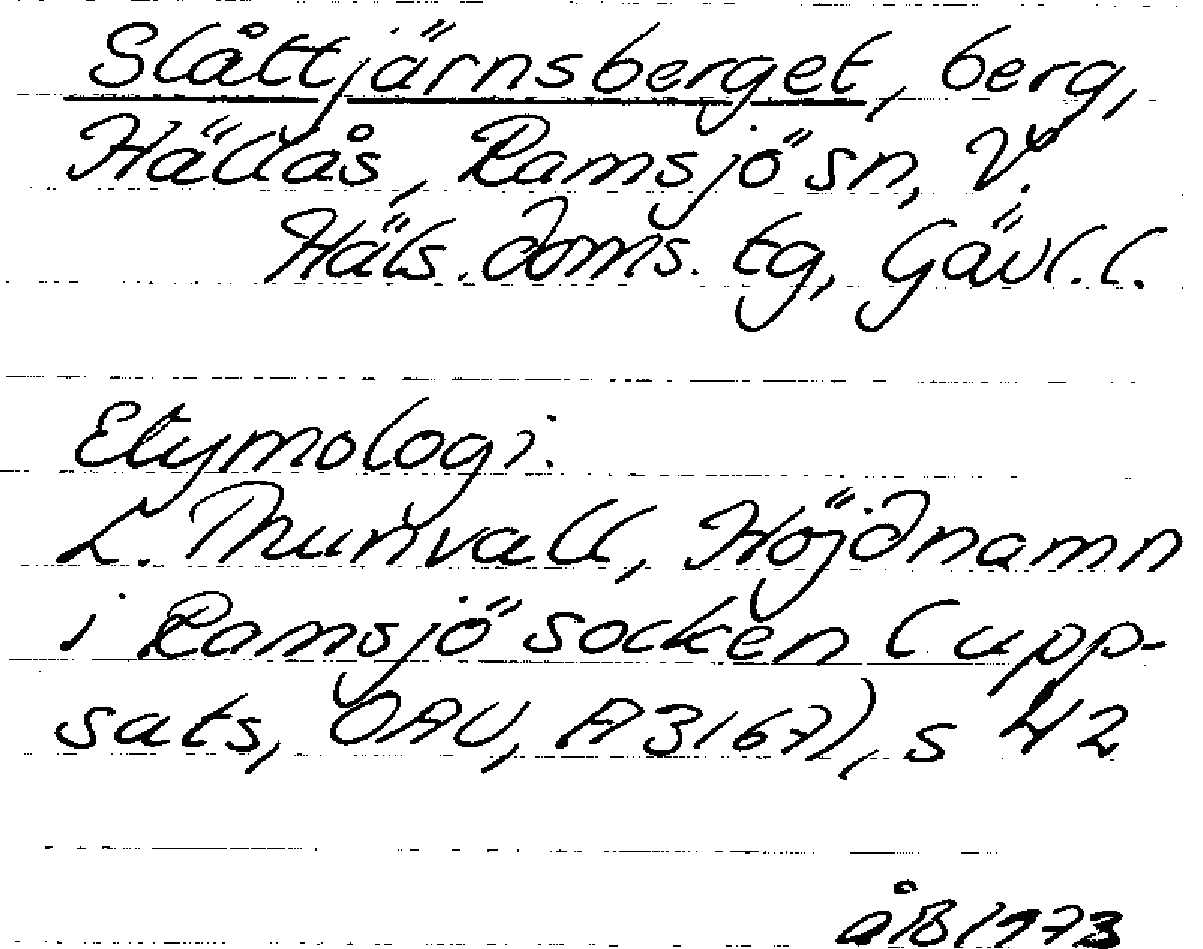 Slåttjärnsberget, berg,
Hällås, Ramsjö sn, V.
Häls. doms. tg, Gävl. l.
Etymologi.
L. Thunvall, Höjdnamn
i Ramsjö socken (upp-
sats, OAU, A3167), s 42
åB 1973